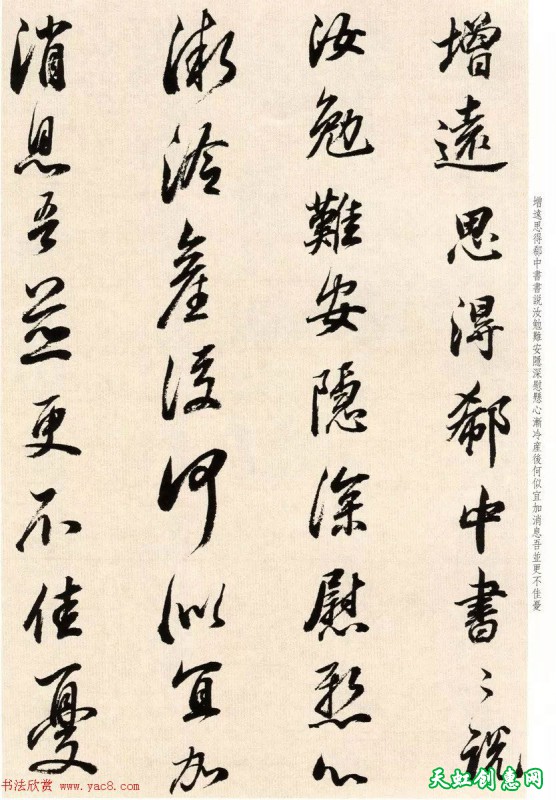 增遠思得郗中書〻說
汝勉難安隱深慰懸心
漸冷產後何似宜加
消息吾並更不佳憂
增遠思得郗中書書説汝勉難安隱深慰懸心漸冷産後何似宜加消息吾並更不佳憂
书法欣赏 www.yac8.com
天虹创意网